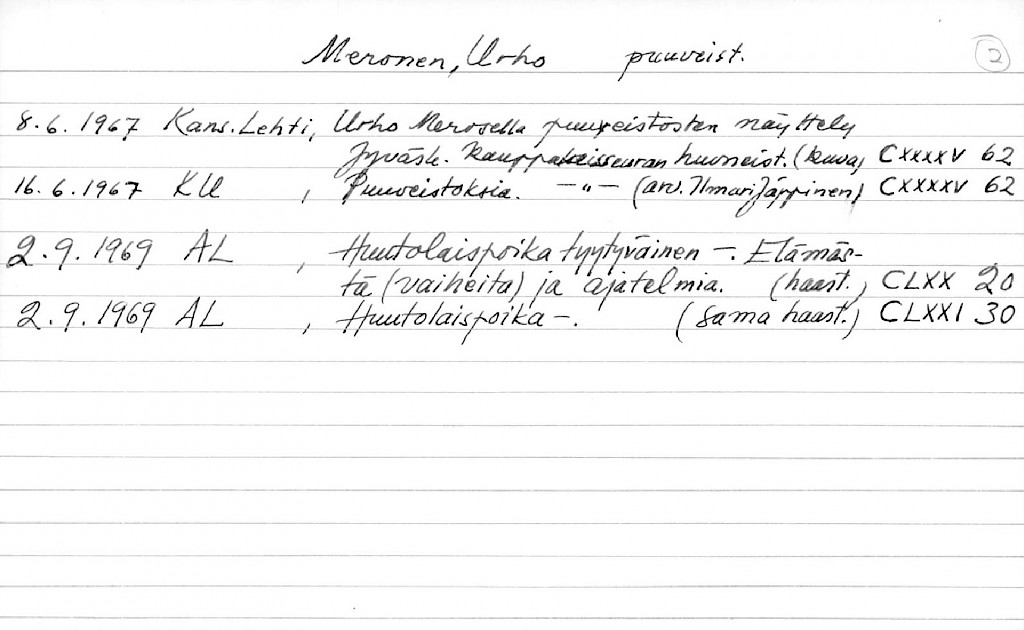 Meronen, Urho puuveist. 2
8.6.1967 Kans. Lehti, Urho Merosella puuveistosten näyttely
Jyväsk. Kauppalaisseuran huoneist. (kuva) CXXXXV 62
16.6.1967 KU , Puuveistoksia. —"— (arv. Ilmari Jäppinen) CXXXXV 62
2.9.1969 AL , Huutolaispoika tyytyväinen —. Elämäs-
tä (vaiheita) ja ajatelmia. (haast.) CLXX 20
2.9.1969 AL , Huutolaispoika —. (Sama haast.) CLXXI 30